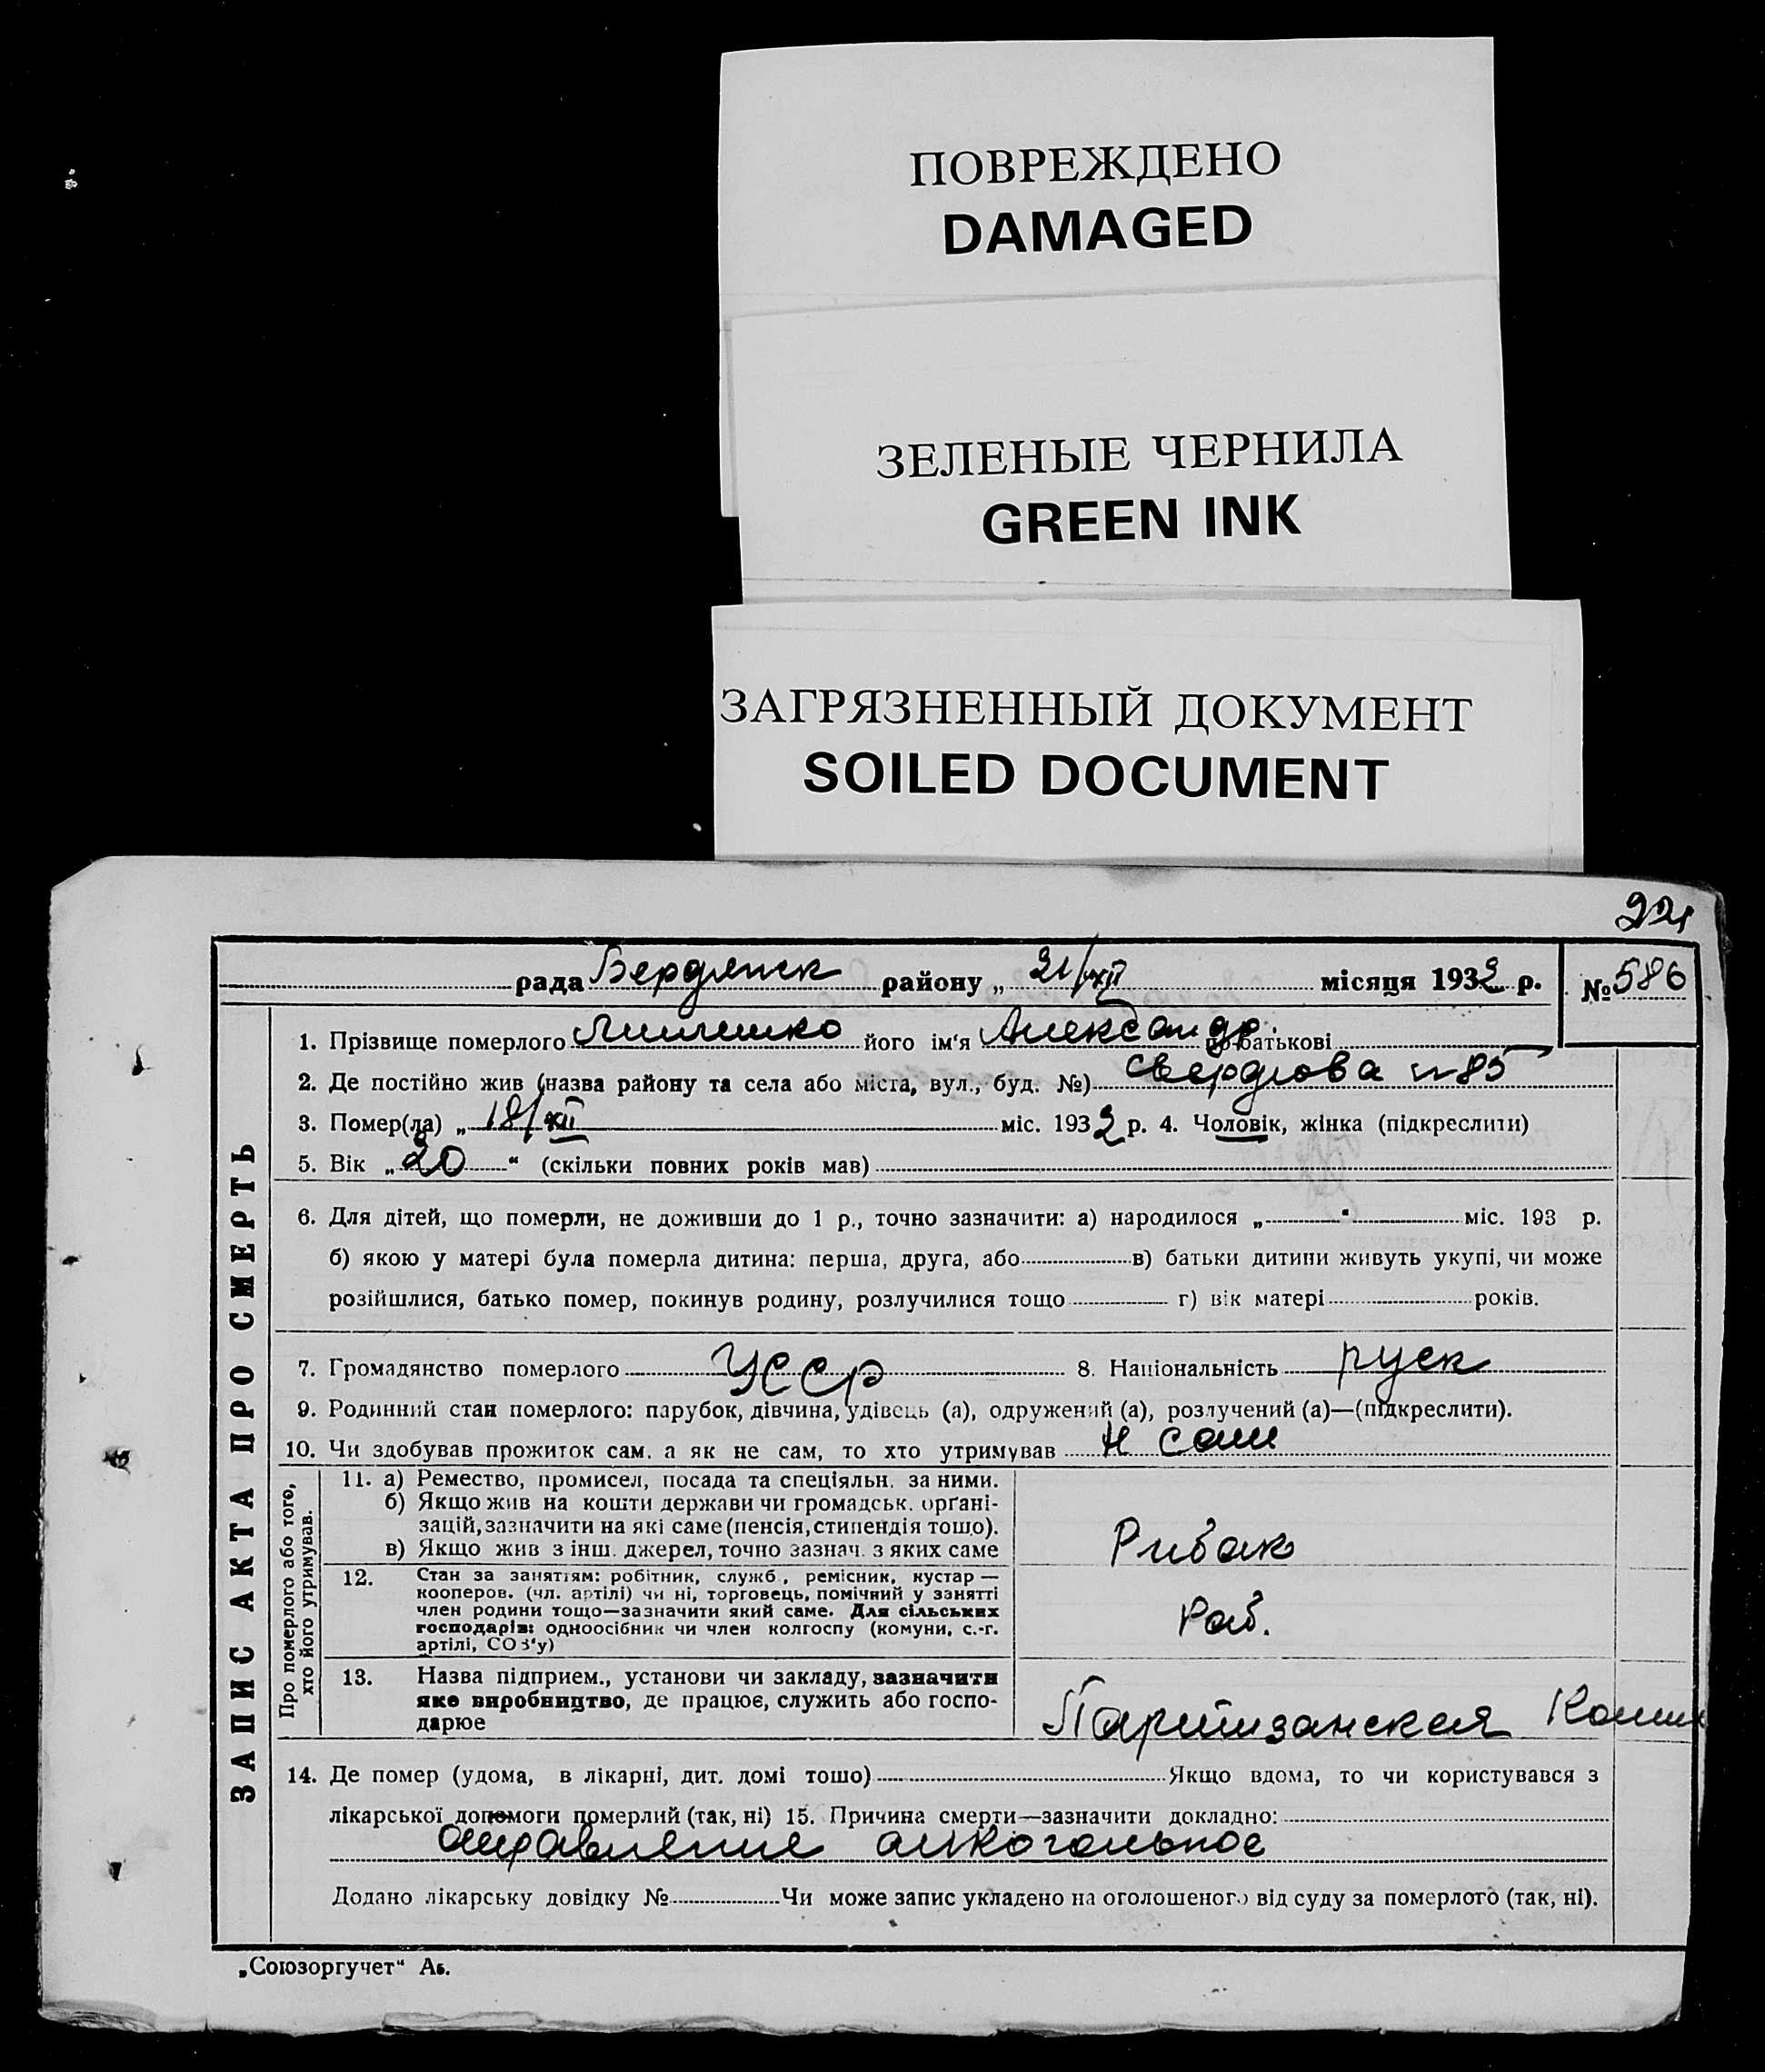 ПОВРЕЖДЕНО
DAMAGED
ЗЕЛЕНЫЕ ЧЕРНИЛА
GREEN INK
ЗАГРЯЗНЕННЫЙ ДОКУМЕНТ
SOILED DOCUMENT
221
рада Бердянск району „ 21/XII місяця 1932 р. № 586
ЗАПИС АКТА ПРО СМЕРТЬ
1. Прізвище померлого його ім'я Александр по батькові
2. Де постійно жив (назва району та села або міста, вул., буд. №) Свердлова № 85
3. Помер(ла) „ 18/XII міс. 1932 р. 4. Чоловік, жінка (підкреслити)
5. Вік „ 20 “ (скільки повних років мав)
6. Для дітей, що померли, не доживши до 1 р., точно зазначити: а) народилося „ “ міс. 193 р.
б) якою у матері була померла дитина: перша, друга, або в) батьки дитини живуть укупі, чи може
розійшлися, батько помер, покинув родину, розлучилися тощо г) вік матері років.
7. Громадянство померлого УССР 8. Національність руск
9. Родинний стан померлого: парубок, дівчина, удівець (а), одружений (а), розлучений (а)—(підкреслити).
10. Чи здобував прожиток сам, а як не сам, то хто утримував сам
Про померлого або того,
хто його утримував.
11. а) Ремество, промисел, посада та спеціяльн. за ними.
б) Якщо жив на кошти держави чи громадськ. орґані-
зацій, зазначити на які саме (пенсія, стипендія тощо).
в) Якщо жив з інш. джерел, точно зазнач. з яких саме
Рибак
12. Стан за заняттям: робітник, служб., ремісник, кустар —
кооперов. (чл. артілі) чи ні, торговець, помічний у занятті
член родини тощо—зазначити який саме. Для сільських
господарів: одноосібник чи член колгоспу (комуни, с.-г.
артілі, СОЗ'у)
Раб.
13. Назва підприєм., установи чи закладу, зазначити
яке виробництво, де працює, служить або госпо-
дарює
Партизанская Комин
14. Де помер (удома, в лікарні, дит. домі тощо) Якщо вдома, то чи користувався з
лікарської допомоги померлий (так, ні) 15. Причина смерти—зазначити докладно:
отравление алкогольное
Додано лікарську довідку № Чи може запис укладено на оголошеного від суду за померлого (так, ні).
„Союзоргучет“ А5.